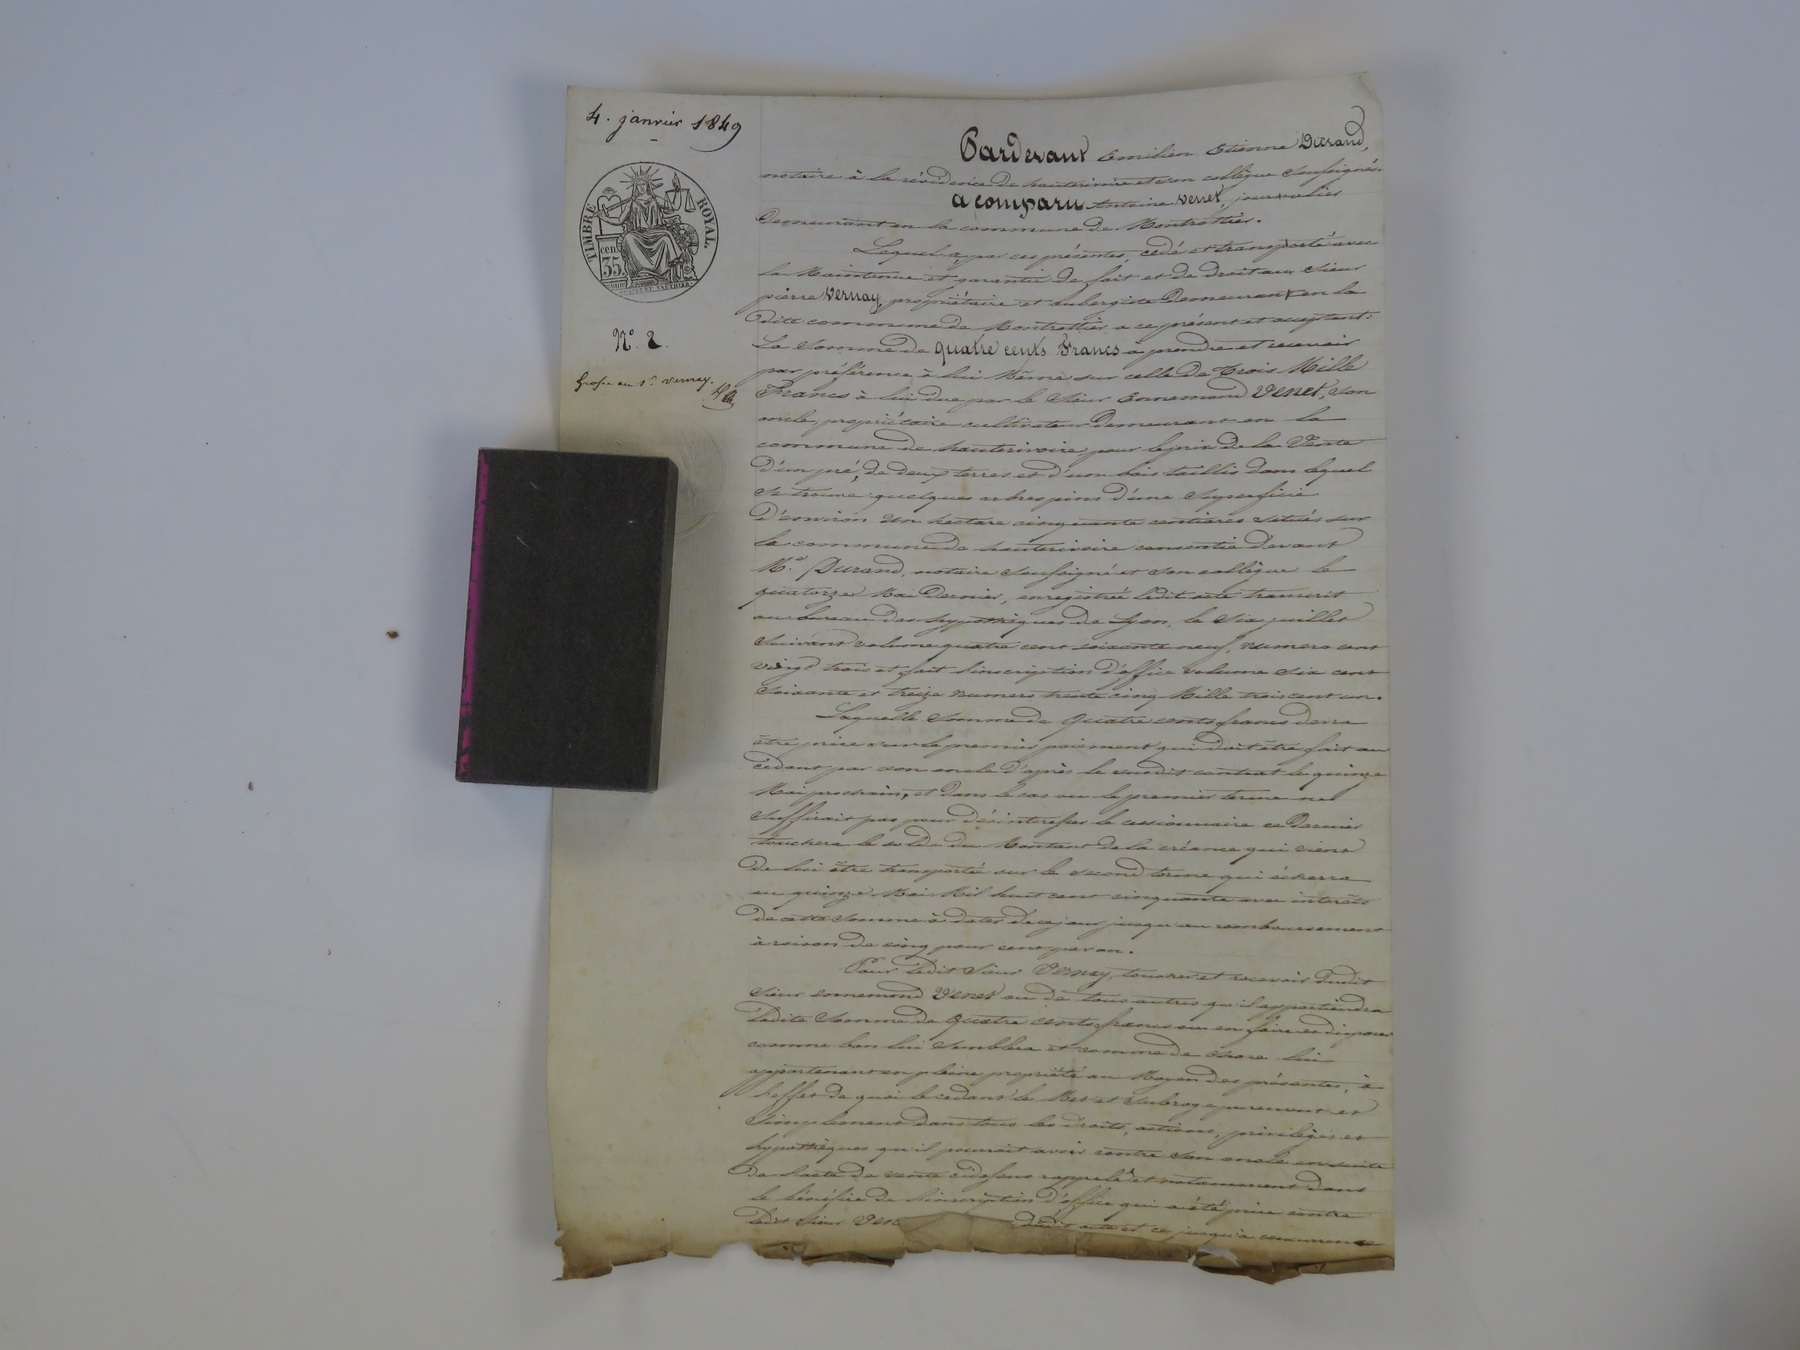 4. janvier 1849
TIMBRE ROYAL.
cen.
35.
N.° 2.
Grosse au s.r Vernay.
Pardevant Emilien Etienne Durand,
notaire à la résidence de hauterivoire et son collègue soussignés.
a comparu Antoine Venet, journalier
demeurant en la commune de Montrottier.
Lequel a, par ces présentes, cédé et transporté avec
la Maintenue et garantie de fait et de droit au sieur
pierre Vernay, propriétaire et aubergiste demeurant en la
dite commune de Montrottier, a ce présent et acceptant:
La Somme de quatre cents Francs à prendre et recevoir
par préférence à lui Même sur celle de Trois Mille
Francs à lui due par le Sieur Ennemond Venet, son
oncle, propriétaire cultivateur demeurant en la
commune de hauterivoire pour le prix de la Vente
d'un pré, de deux terres et d'un bois taillis dans lequel
se trouve quelques arbres pins d'une Superficie
d'environ un hectare cinquante centiares situés sur
la commune de hauterivoire consentie devant
M.e Durand, notaire soussigné et son collègue le
quatorze Mai dernier, enregistrée ledit acte transcrit
au bureau des hypothèques de Lyon, le six juillet
suivant volume quatre cent soixante neuf, numero cent
vingt trois et fait l'inscription d'office volume six cent
soixante et treize numero trente cinq Mille trois cent un.
Laquelle Somme de Quatre cents francs devra
être prise sur le premier paiement qui doit être fait au
cédant par son oncle d'après le susdit contrat le quinze
Mai prochain, et dans le cas ou le premier terme ne
suffirait pas pour désintéresser le cessionnaire ce dernier
touchera le solde du Montant de la créance qui vient
de lui être transportée sur le second terme qui écherra
au quinze Mai Mil huit cent cinquante avec intérêts
de cette Somme à dater de ce jour jusqu'au remboursement
à raison de cinq pour cent par an.
Pour ledit Sieur Vernay, toucher et recevoir dudit
Sieur ennemond Venet ou de tous autres qu'il appartiendra
ladite Somme de Quatre cents francs ou en faire et disposer
comme bon lui Semblera et comme de chose lui
appartenant en pleine propriété au Moyen des présentes, à
l'effet de quoi le cédant le Met et subroge purement et
Simplement dans tous les droits, actions, privilèges et
hypothèques qu'il pourrait avoir contre Son oncle ensuite
de l'acte de vente cidessus rappelé et notamment dans
le bénéfice de l'inscription d'office qui a été prise contre
ledit Sieur dudit acte et ce jusqu'à concurrence